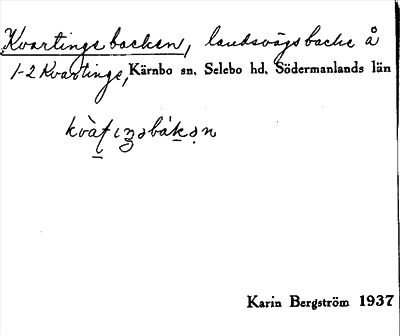 Kvartingebacken, landsvägsbacke å
1-2 Kvartinge, Kärnbo sn. Selebo hd. Södermanlands län
Karin Bergström 1937